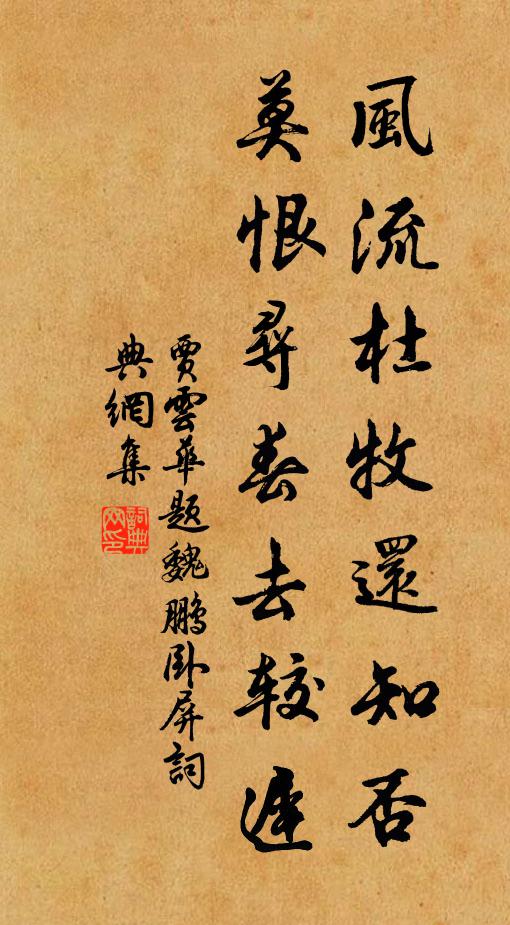 風流杜牧還知否
莫恨尋春去較遲
賈雲華題魏鵬卧屏詞
典網集
詞典
网印